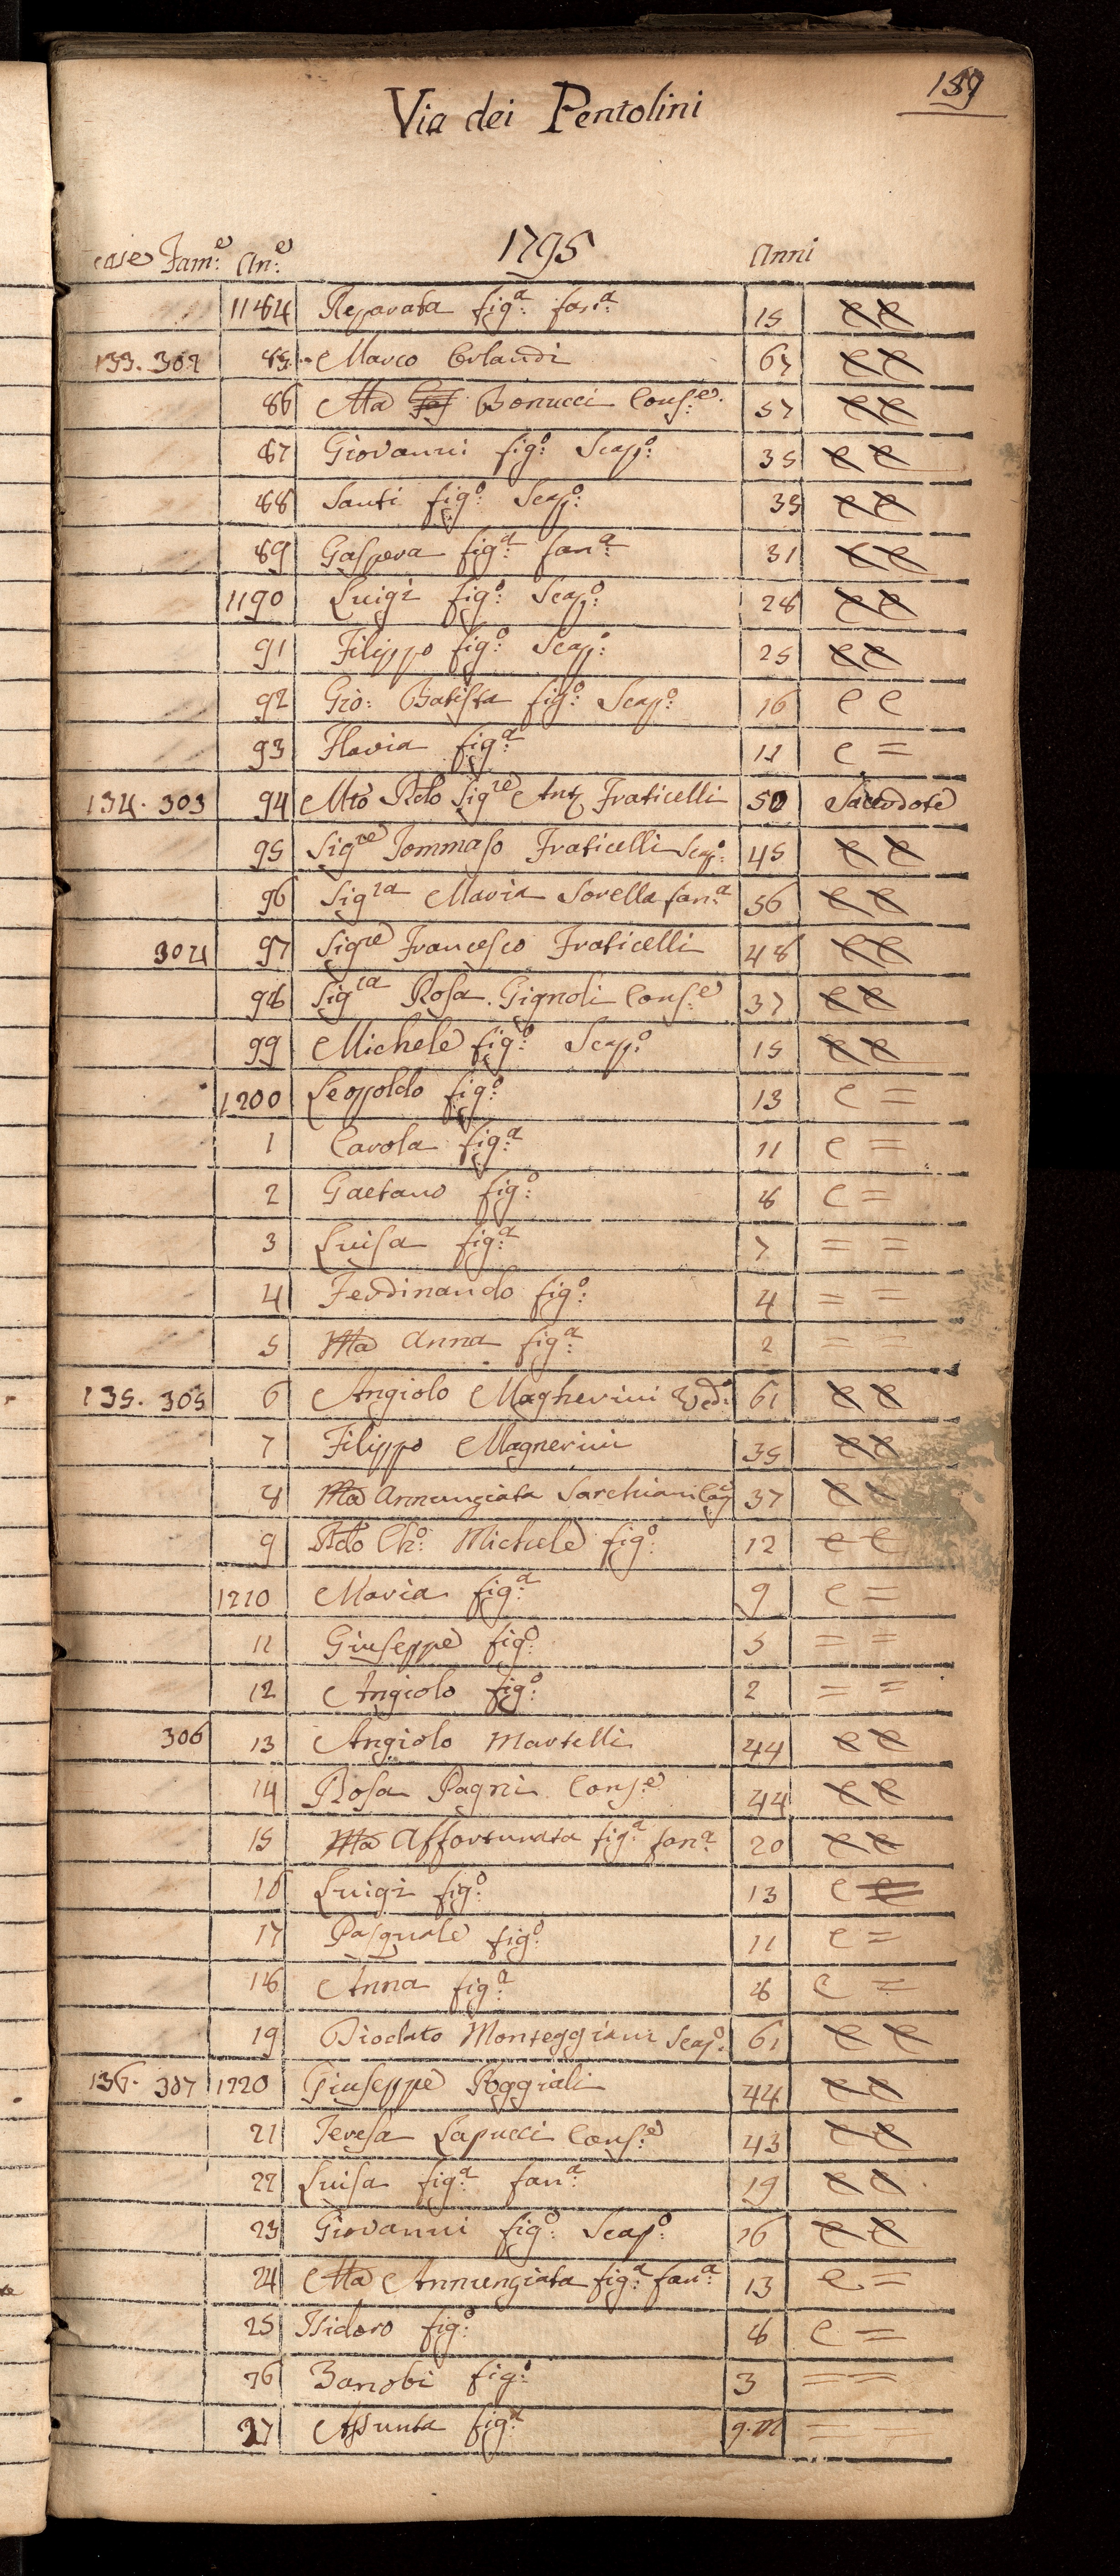 189
Via dei Pentolini
1795
case Fam:e An:e Anni
1184 Reparata fig:a fan:a 15 e e
133. 302 85 Marco Orlandi 67 e e
86 Ma Bonucci Cons:e 57 e e
87 Giovanni fig:o Scap:o 35 e e
88 Santi fig:o Scap:o 33 e e
89 Gaspera fig:a fan:a 31 e e
1190 Luigi fig:o Scap:o 28 e e
91 Filippo fig:o Scap:o 25 e e
92 Gio: Batista fig:o Scap:o 16 e e
93 Flavia fig:a 11 e =
134. 303 94 Mto Rdo Sigre Ant. Fraticelli 50 Sacerdote
95 Sigre Tommaso Fraticelli Scap:o 45 e e
96 Sigra Maria Sorella fan:a 56 e e
304 97 Sigre Francesco Fraticelli 48 e e
98 Sigra Rosa Gignoli Cons:e 37 e e
99 Michele fig:o Scap:o 15 e e
1200 Leopoldo fig:o 13 e =
1 Carola fig:a 11 e =
2 Gaetano fig:o 8 e =
3 Luisa fig:a 7 = =
4 Ferdinando fig:o 4 = =
5 Ma Anna fig:a 2 = =
135. 305 6 Angiolo Magherini Ved:o 61 e e
7 Filippo Magherini 35 e e
8 Ma Annunziata Sarchiani 37 e
9 Rdo Ch:o Michele fig:o 12 e e
1210 Maria fig:a 9 e =
11 Giuseppe fig:o 5 = =
12 Angiolo fig:o 2 = =
306 13 Angiolo Martelli 44 e e
14 Rosa Pagni Cons:e 44 e e
15 Ma Affortunata fig:a fan:a 20 e e
16 Luigi fig:o 13 e
17 Pasquale fig:o 11 e =
18 Anna fig:a 8 e =
19 Diodato Monteggiani Scap:o 61 e e
136. 307 1220 Giuseppe Poggiali 44 e e
21 Teresa Lapucci Cons:e 43 e e
22 Luisa fig:a fan:a 19 e e
23 Giovanni fig:o Scap:o 16 e e
24 Ma Annunziata fig:a fan:a 13 e =
25 Isidoro fig:o 8 e =
26 Zanobi fig:o 3 = =
27 Assunta fig:a 9. m = =